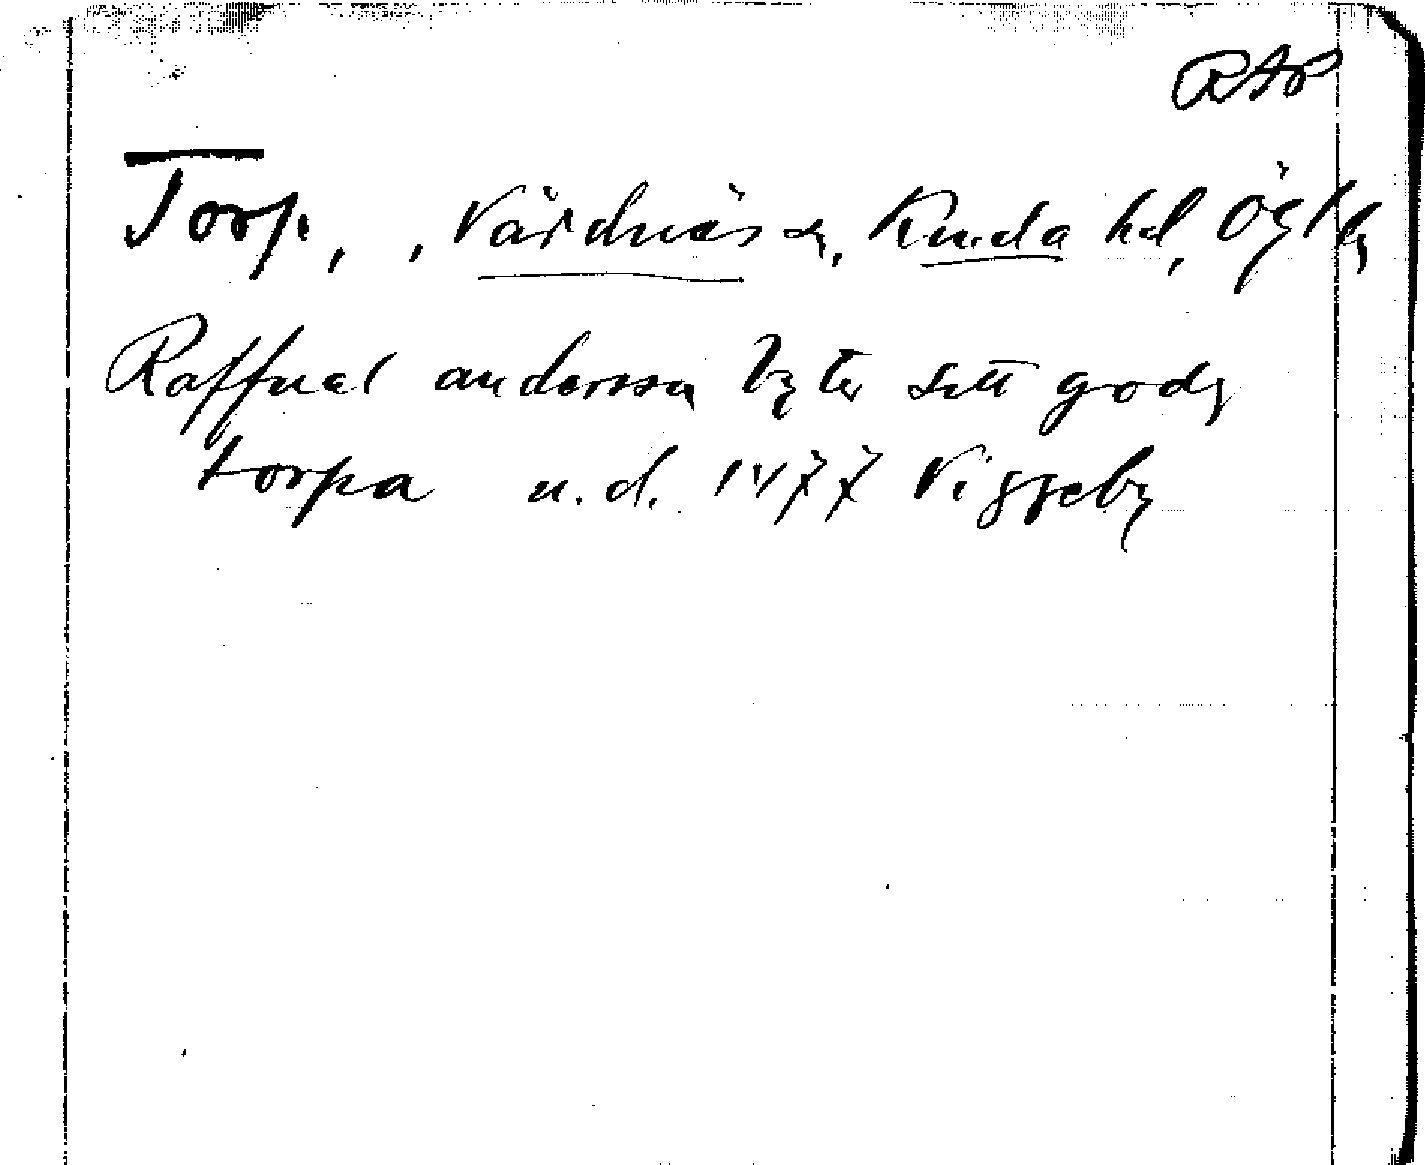 RAP
Torp, , Vårdnäs sn, Kinda hd, Ög l
Raffuel andersson byter sitt gods
torpa u.d. 1477 Viggeby